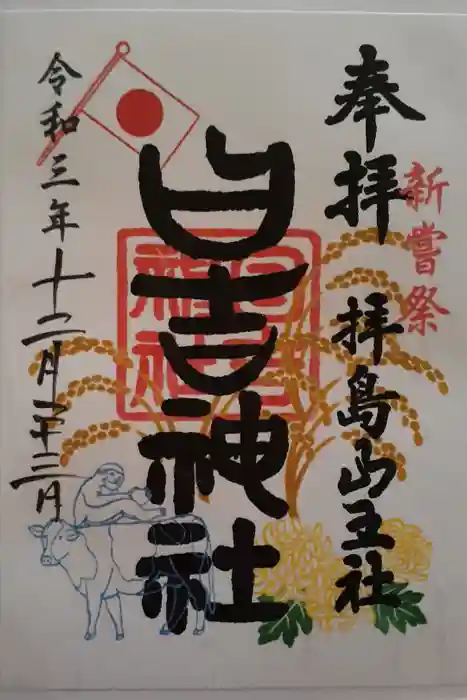 奉拝
新嘗祭
拝島山王社
日吉神社
日吉
神社
令和三年十一月二十三日